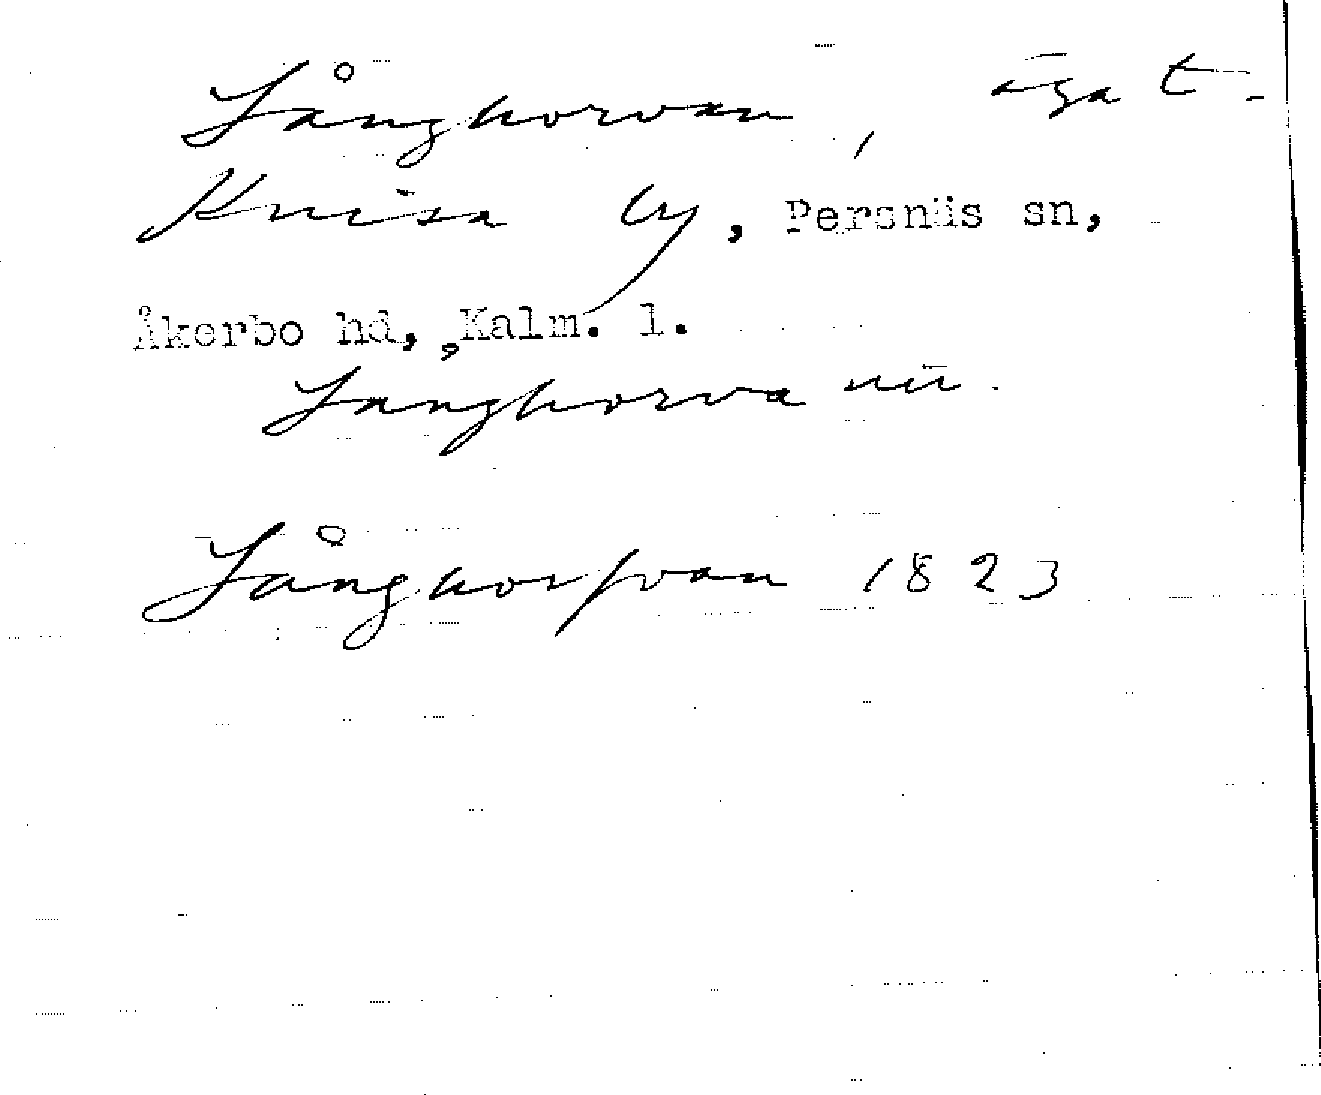 Långhorvan, äga t.
Knisa by, Persnäs sn,
Åkerbo hd, Kalm. l.
Langhorva
Långhorfvan 1823